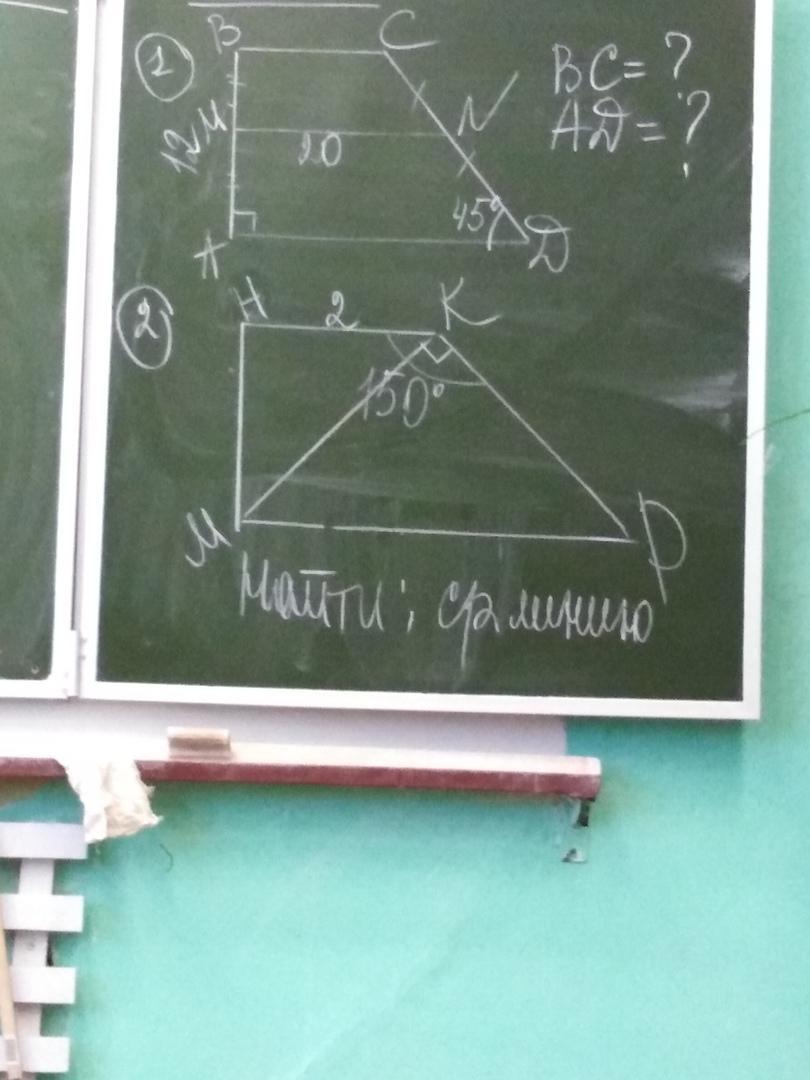 1
B
C
BC = ?
12
M
N
20
AD = ?
45°
A
D
2
H
2
K
150°
M
P
Найти: ср линию